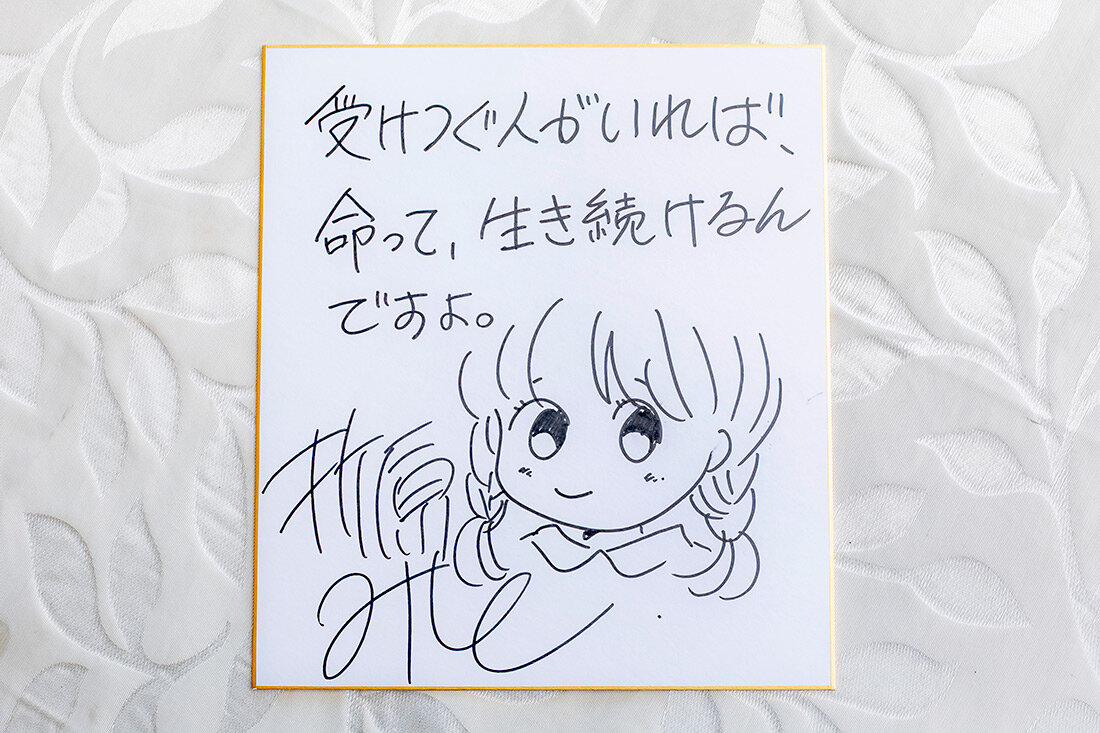 受けつぐ人がいれば、
命って、生き続けるん
ですよ。
折原
みと